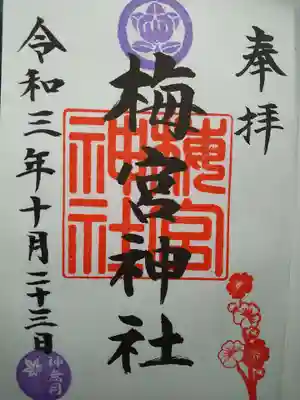 奉拝
梅宮神社
梅宮神社
令和三年十月二十三日